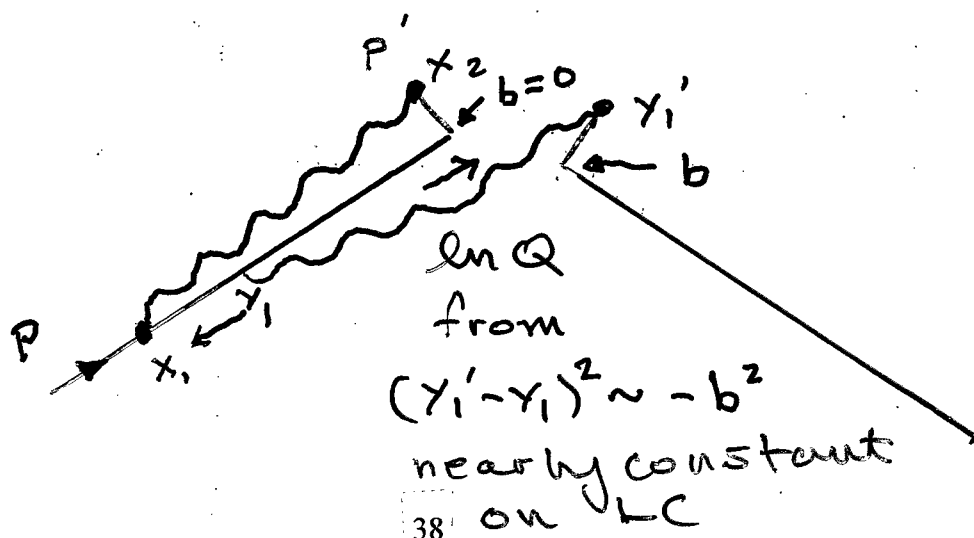 P'
x2
b=0
y1'
b
y1
P
x1
ln Q
from
(y1'-y1)² ~ -b²
nearly constant
38 on LC